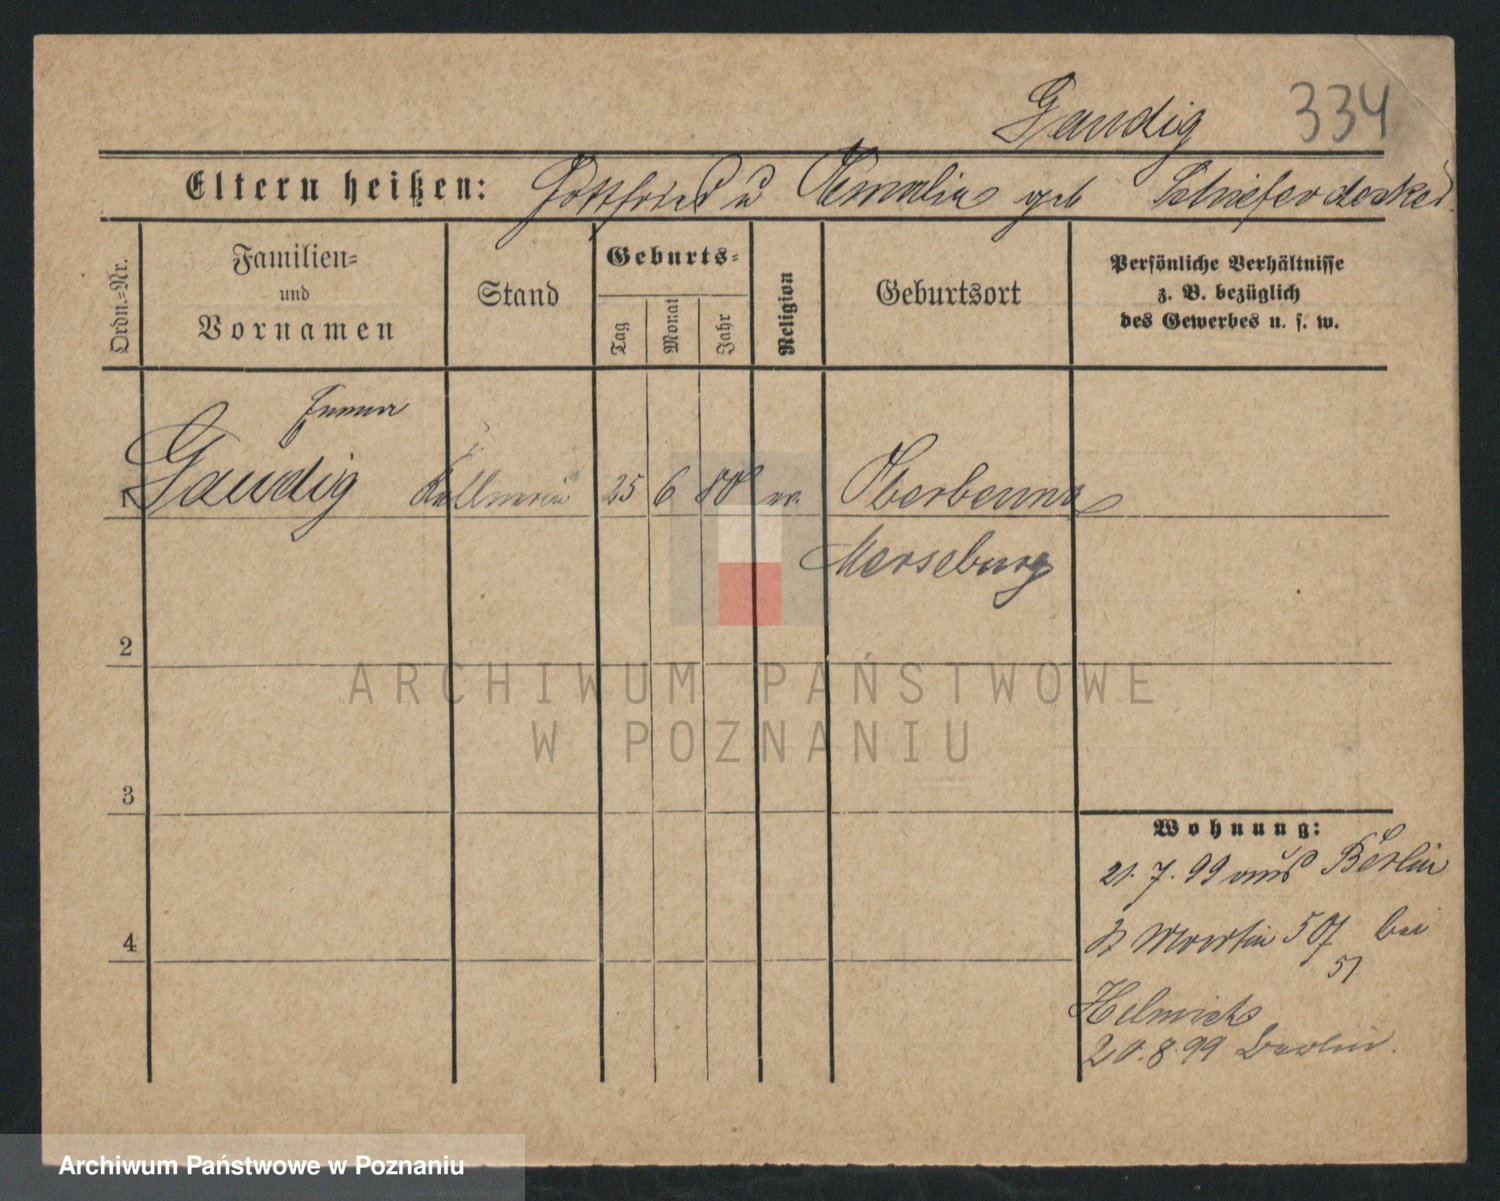 Gaudig 334
Eltern heißen: Gottfried u geb Schieferdecker
Ordn.-Nr.
Familien-
und
Vornamen
Stand
Geburts-
Tag
Monat
Jahr
Religion
Geburtsort
Persönliche Verhältnisse
z. B. bezüglich
des Gewerbes u. s. w.
Emma
1 Gaudig Kellnerin 25 6 80 ev. Oberbeuna
Merseburg
2
ARCHIWUM PAŃSTWOWE
W POZNANIU
3
Wohnung:
21.7.99 aus Berlin
St Martin 50/ bei
51
Helmich
20.8.99 Berlin.
4
Archiwum Państwowe w Poznaniu